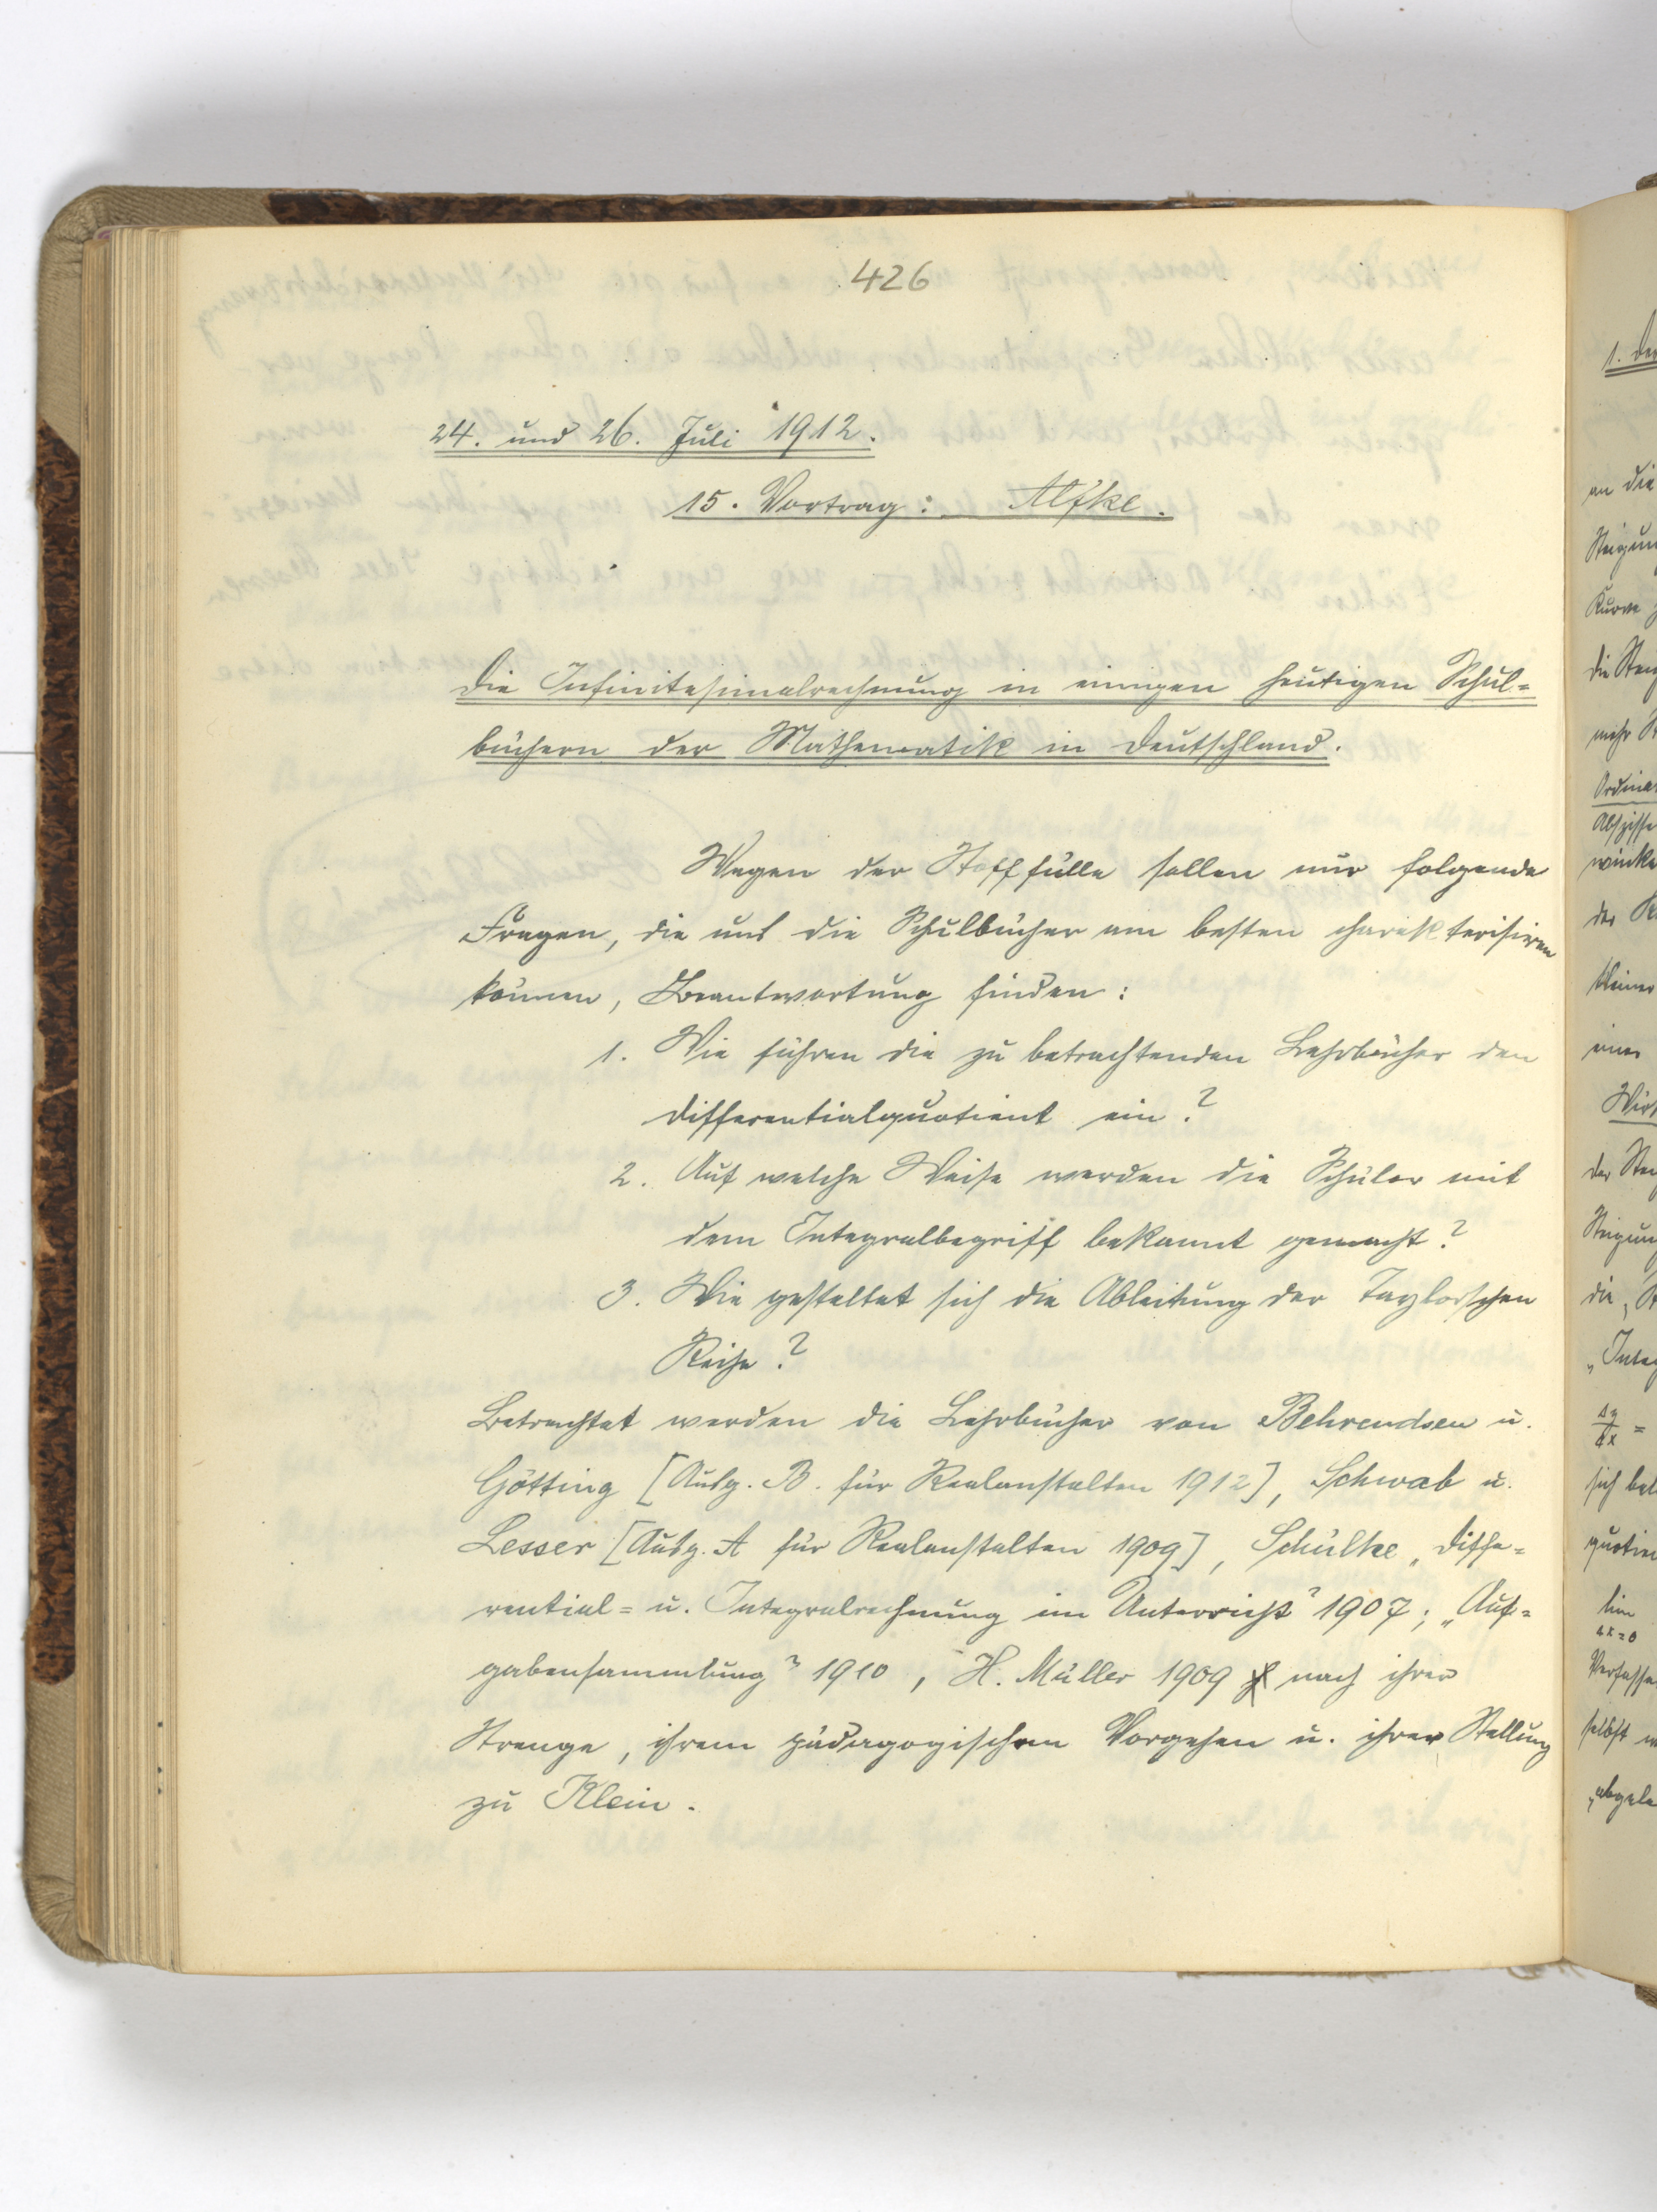 426
24. und 26. Juli 1912.
15. Vortrag: Alfke.
Die Infinitesimalrechnung in einigen heutigen Schul=
büchern der Mathematik in Deutschland.
Wegen der Stoffülle sollen nur folgende
Fragen, die uns die Schulbücher am besten charakterisiren
können, Beantwortung finden:
1. Wie führen die zu betrachtenden Lehrbücher den
Differentialquotient ein?
2. Auf welche Weise werden die Schüler mit
dem Integralbegriff bekannt gemacht?
3. Wie gestaltet sich die Ableitung der Taylorschen
Reihe?
Betrachtet werden die Lehrbücher von Behrendsen u.
Götting [Ausg. B. für Realanstalten 1912], Schwab u.
Lesser [Ausg. A für Realanstalten 1909], Schülke „Diffe=
rential= u. Integralrechnung im Unterricht" 1907; „Auf=
gabensammlung" 1910, H. Müller 1909 nach ihrer
Strenge, ihrem pädagogischen Vorgehen u. ihrer Stellung
zu Klein.
1. Der
an die
Steigun
Kurve
die Stei
mehr
Ordina
Absziss
winke
der
kleiner
einer
der Stei
Steigun
die
„Integ
Δy/Δx =
sich bei
quotien
lim
Δx=0
Verfasse
selbst
„abgele